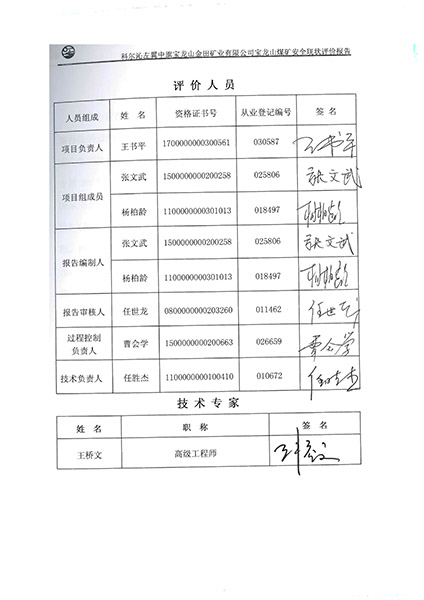 科尔沁左翼中旗宝龙山金田矿业有限公司宝龙山煤矿安全现状评价报告
评价人员
人员组成 姓名 资格证书号 从业登记编号 签名
项目负责人 王书平 1700000000300561 030587 王书平
项目组成员 张文武 1500000000200258 025806 张文武
杨柏龄 1100000000301013 018497 杨柏龄
报告编制人 张文武 1500000000200258 025806 张文武
杨柏龄 1100000000301013 018497 杨柏龄
报告审核人 任世龙 0800000000203260 011462 任世龙
过程控制
负责人 曹会学 1500000000200663 026659 曹会学
技术负责人 任胜杰 1100000000100410 010672 任胜杰
技术专家
姓名 职称 签名
王桥文 高级工程师